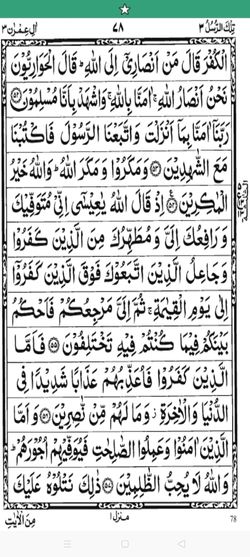 تِلۡكَ الرُّسُلُ ٣ ٧٨ اٰلِ عِمۡرٰن ٣
الۡكُفۡرَ قَالَ مَنۡ اَنۡصَارِىۡۤ اِلَى اللّٰهِ‌ؕ قَالَ الۡحَوَارِيُّوۡنَ
نَحۡنُ اَنۡصَارُ اللّٰهِ‌ۚ اٰمَنَّا بِاللّٰهِ‌ۚ وَاشۡهَدۡ بِاَنَّا مُسۡلِمُوۡنَ ﴿۵۲﴾
رَبَّنَاۤ اٰمَنَّا بِمَاۤ اَنۡزَلۡتَ وَاتَّبَعۡنَا الرَّسُوۡلَ فَاكۡتُبۡنَا
مَعَ الشّٰهِدِيۡنَ ﴿۵۳﴾ وَمَكَرُوۡا وَمَكَرَ اللّٰهُ‌ؕ وَاللّٰهُ خَيۡرُ
الۡمٰكِرِيۡنَ ﴿۵۴﴾ اِذۡ قَالَ اللّٰهُ يٰعِيۡسٰۤى اِنِّىۡ مُتَوَفِّيۡكَ
وَرَافِعُكَ اِلَىَّ وَمُطَهِّرُكَ مِنَ الَّذِيۡنَ كَفَرُوۡا
وَجَاعِلُ الَّذِيۡنَ اتَّبَعُوۡكَ فَوۡقَ الَّذِيۡنَ كَفَرُوۡۤا
اِلٰى يَوۡمِ الۡقِيٰمَةِ‌ۚ ثُمَّ اِلَىَّ مَرۡجِعُكُمۡ فَاَحۡكُمُ
بَيۡنَكُمۡ فِيۡمَا كُنۡتُمۡ فِيۡهِ تَخۡتَلِفُوۡنَ ﴿۵۵﴾ فَاَمَّا
الَّذِيۡنَ كَفَرُوۡا فَاُعَذِّبُهُمۡ عَذَابًا شَدِيۡدًا فِى
الدُّنۡيَا وَالۡاٰخِرَةِ وَمَا لَهُمۡ مِّنۡ نّٰصِرِيۡنَ ﴿۵۶﴾ وَاَمَّا
الَّذِيۡنَ اٰمَنُوۡا وَعَمِلُوا الصّٰلِحٰتِ فَيُوَفِّيۡهِمۡ اُجُوۡرَهُمۡ‌ؕ
وَاللّٰهُ لَا يُحِبُّ الظّٰلِمِيۡنَ ﴿۵۷﴾ ذٰلِكَ نَتۡلُوۡهُ عَلَيۡكَ
مِنَ الۡاٰيٰتِ منزل ١ 78